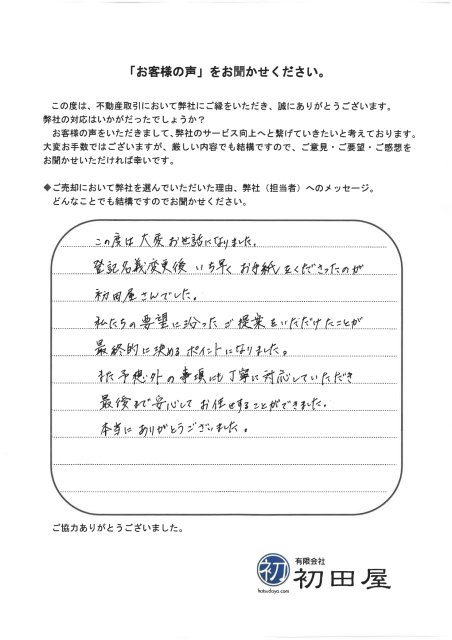 「お客様の声」をお聞かせください。
この度は、不動産取引において弊社にご縁をいただき、誠にありがとうございます。
弊社の対応はいかがだったでしょうか？
お客様の声をいただきまして、弊社のサービス向上へと繋げていきたいと考えております。
大変お手数ではございますが、厳しい内容でも結構ですので、ご意見・ご要望・ご感想を
お聞かせいただければ幸いです。
◆ご売却において弊社を選んでいただいた理由、弊社（担当者）へのメッセージ。
どんなことでも結構ですのでお聞かせください。
この度は大変お世話になりました。
登記名義変更後いち早くお手紙をくださったのが
初田屋さんでした。
私たちの要望に沿ったご提案をいただけたことが
最終的に決めるポイントになりました。
また予想外の事項にも丁寧に対応していただき
最後まで安心してお任せすることができました。
本当にありがとうございました。
ご協力ありがとうございました。
初
hatsudaya.com
有限会社
初田屋